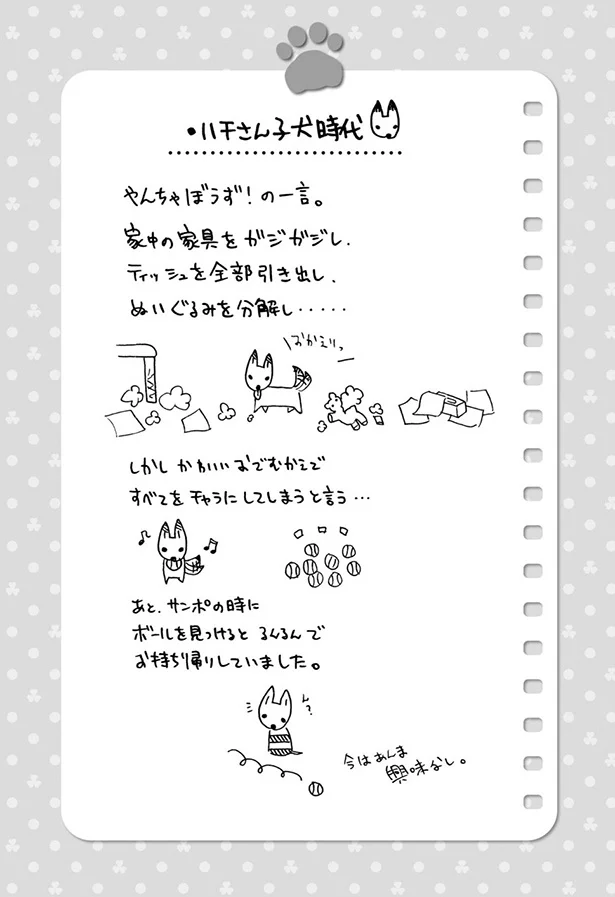 ・ハチさん子犬時代
やんちゃぼうず！の一言。
家中の家具をガジガジし、
ティッシュを全部引き出し、
ぬいぐるみを分解し・・・・・
おかえりっ
しかしかわいいおでむかえで
すべてをチャラにしてしまうと言う…
あと、サンポの時に
ボールを見つけるとるんるんで
お持ち帰りしていました。
ん？
今はあんま
興味なし。